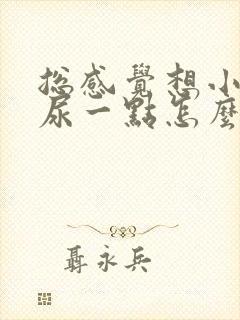 總感覺想小
尿一點怎麼
聶永兵